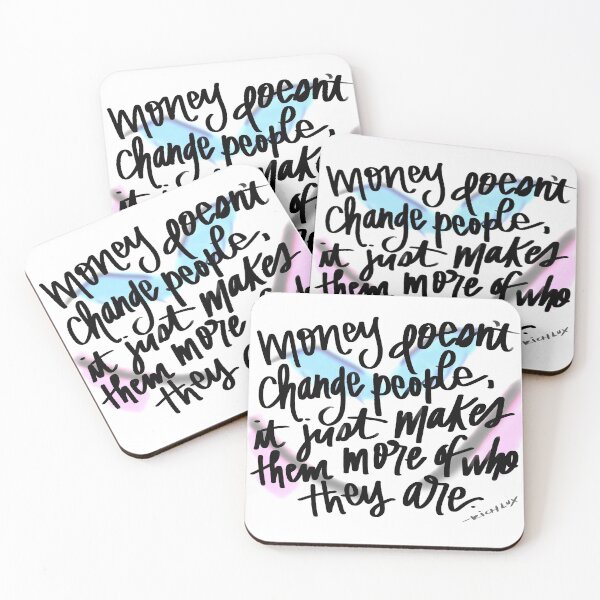 money doesn't
change people,
it makes
of
money doesn't
change people,
it just makes
them more of who
-RICH LUX
money doesn't
change people,
it just makes
them more
they
money doesn't
change people,
it just makes
them more of who
they are.
-RICH LUX